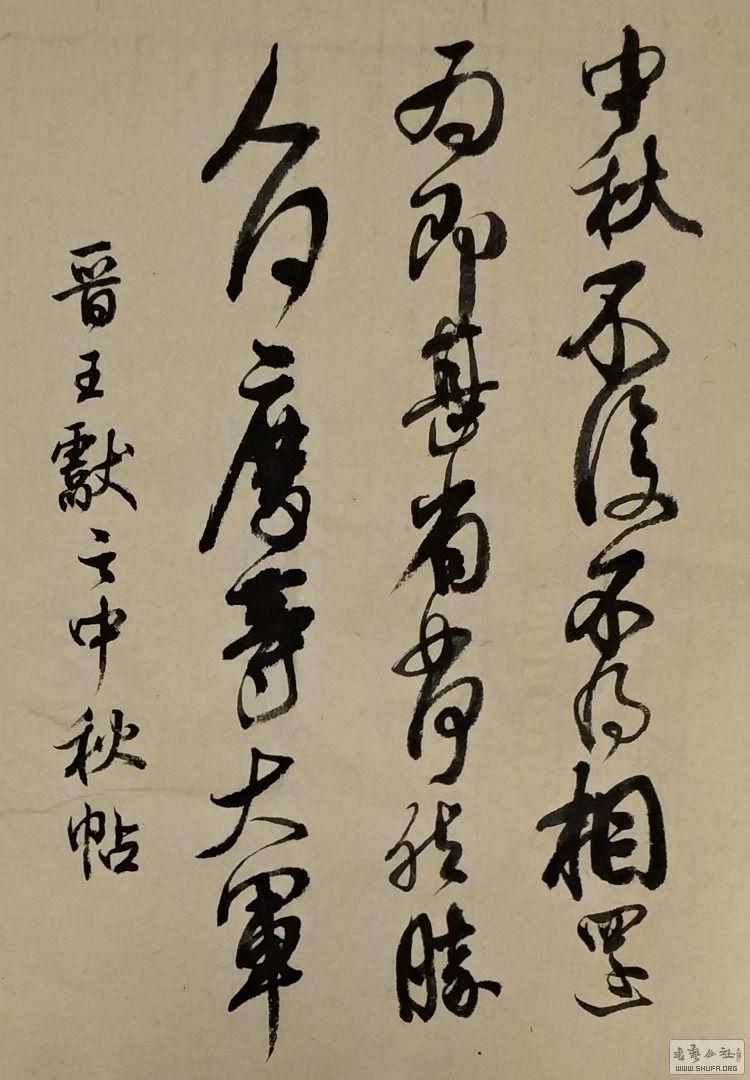 中秋不復不得相還
為即甚省如何然勝
人何慶等大軍
晉王獻之中秋帖
書藝公社
WWW.SHUFA.ORG